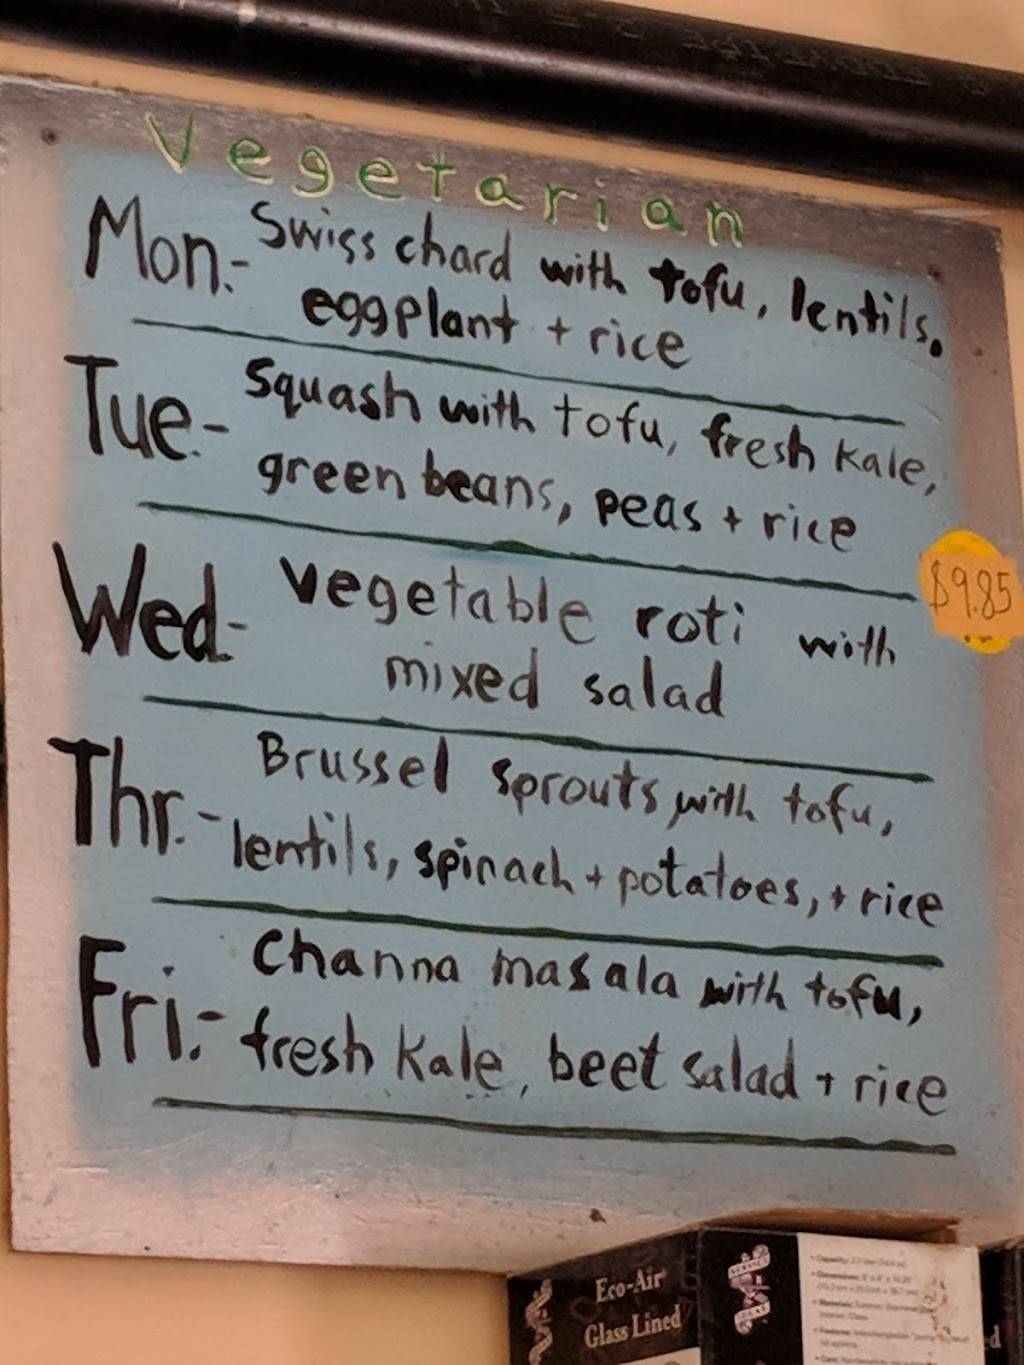 Vegetarian
Mon.- Swiss chard with tofu, lentils.
eggplant + rice
Tue- Squash with tofu, fresh kale,
green beans, peas + rice
$9.85
Wed- vegetable roti with
mixed salad
Thr.- Brussel sprouts with tofu,
lentils, spinach + potatoes, + rice
Fri.- Channa masala with tofu,
fresh kale, beet salad + rice
Eco-Air
Glass Lined